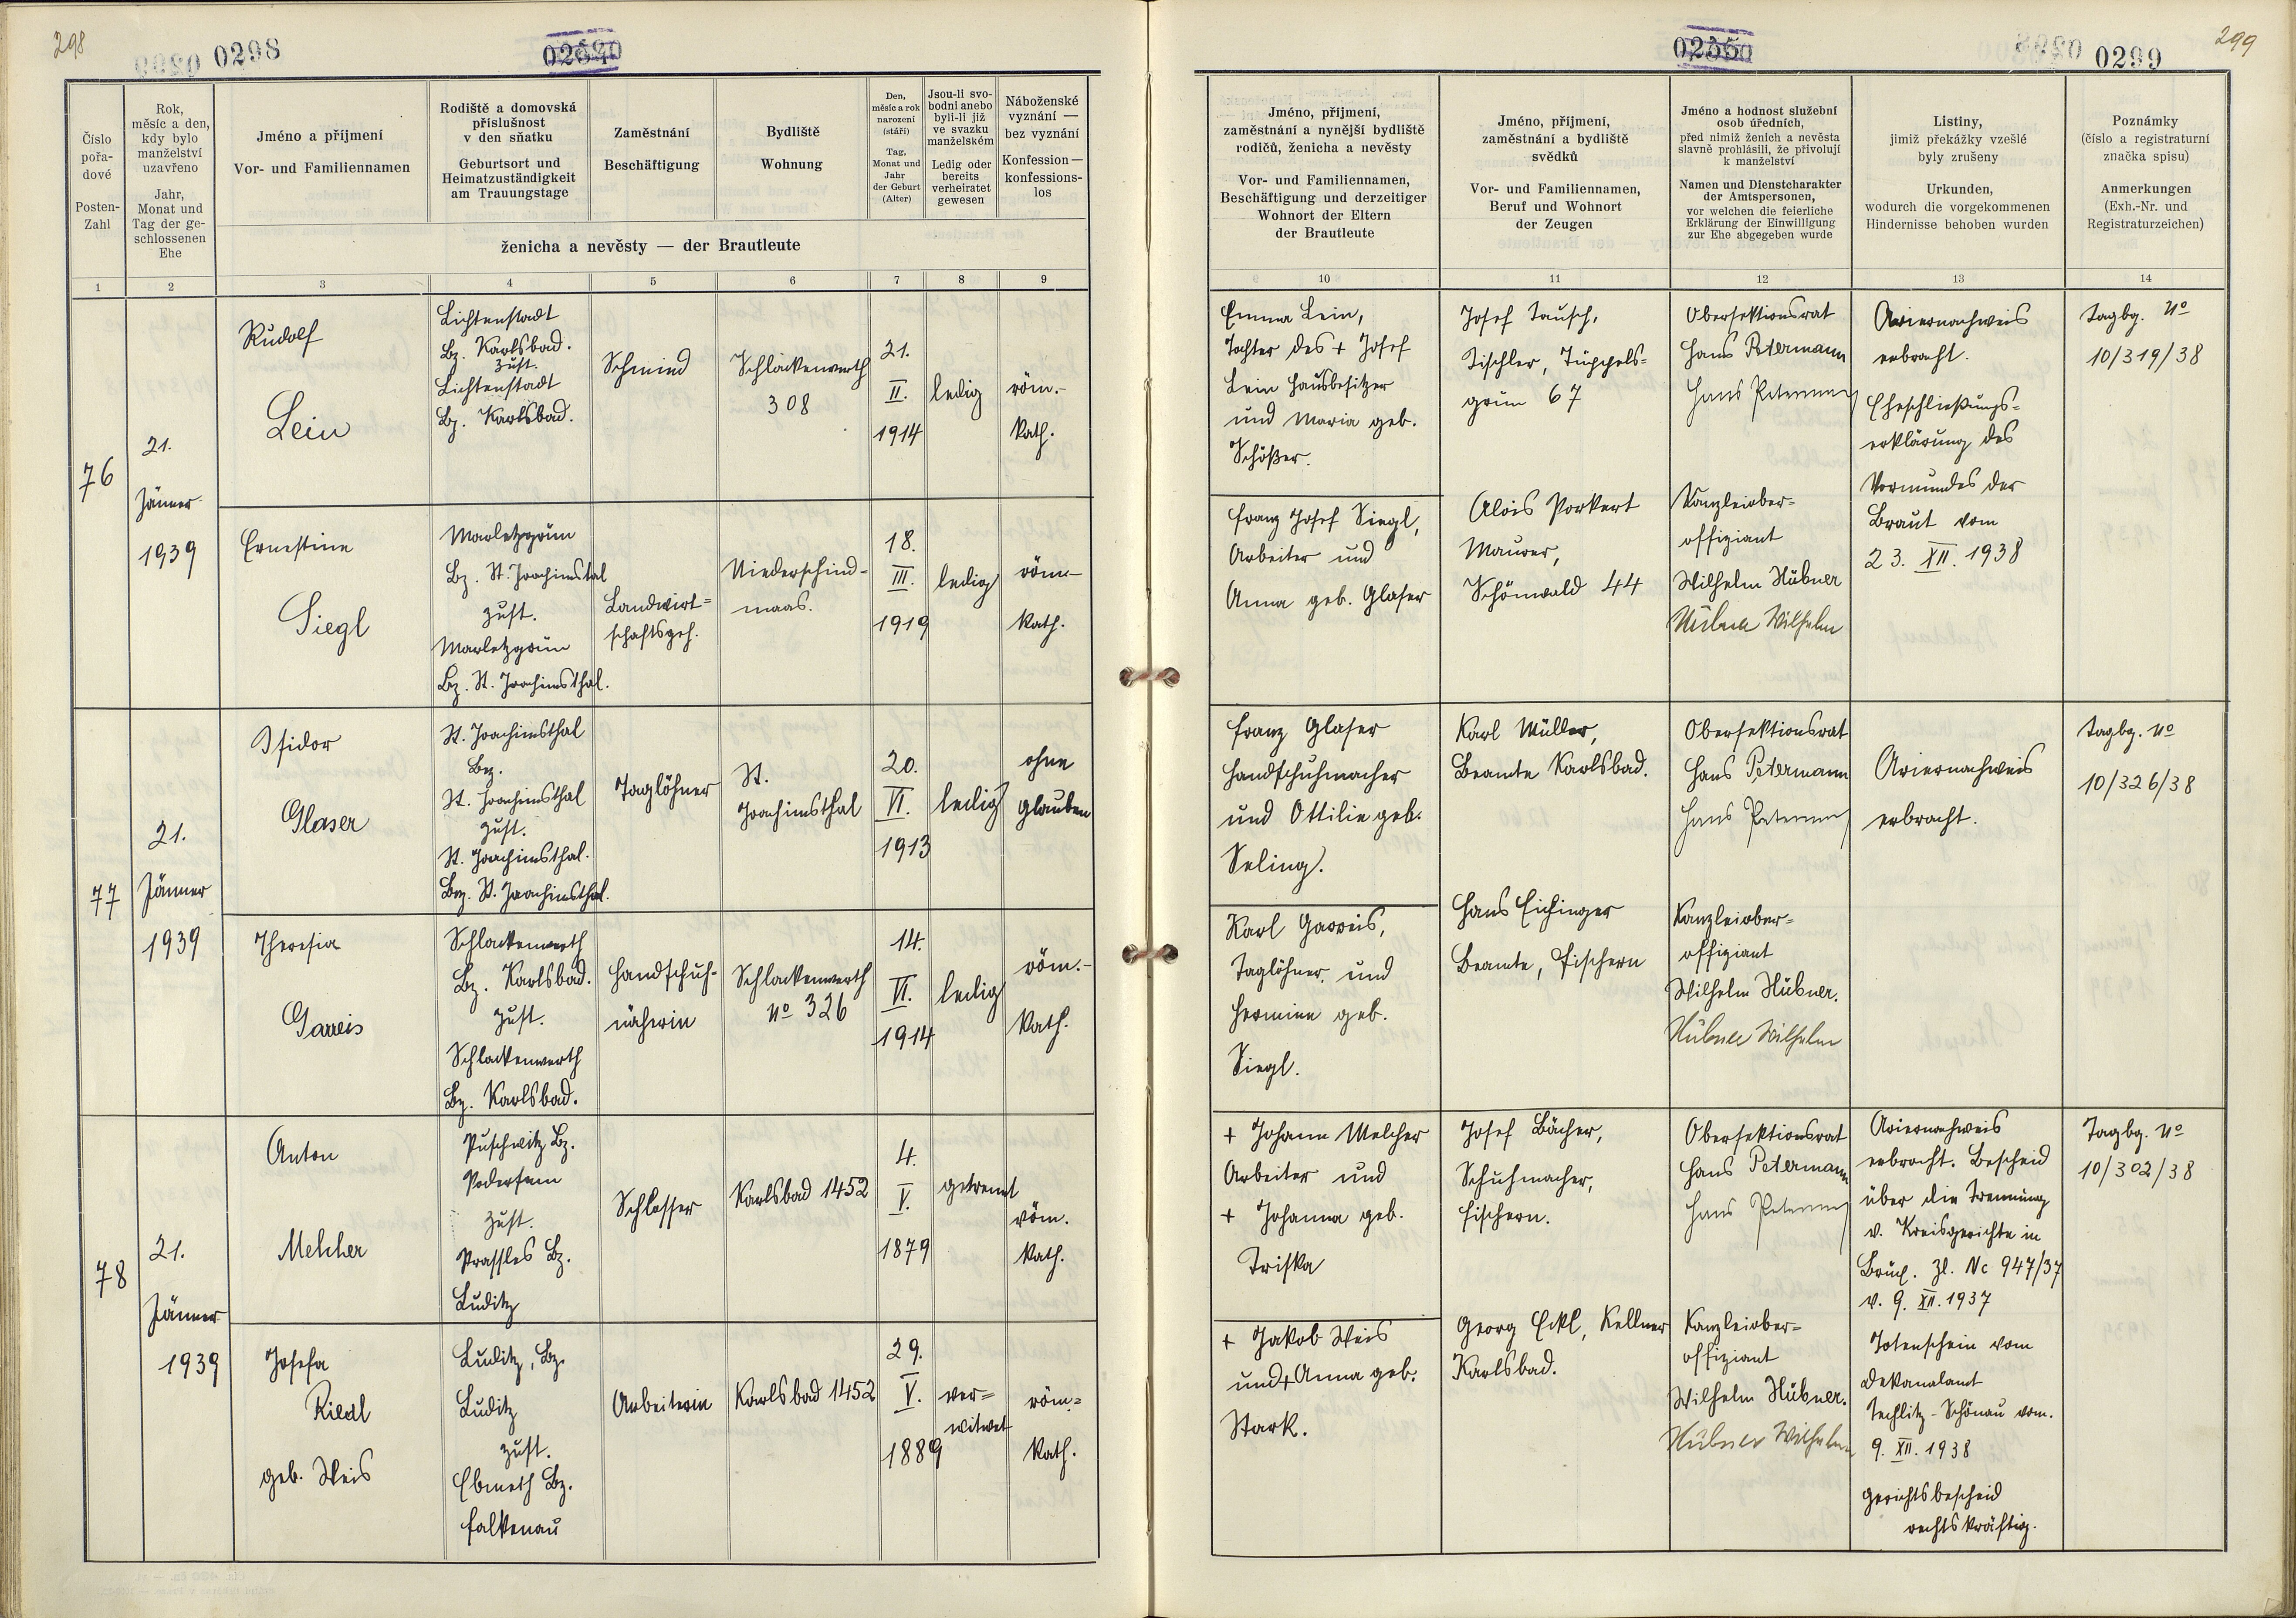 298
0298
02540
02550
0299
299
Číslo
pořa-
dové
Posten-
Zahl
Rok,
měsíc a den,
kdy bylo
manželství
uzavřeno
Jahr,
Monat und
Tag der ge-
schlossenen
Ehe
Jméno a příjmení
Vor- und Familiennamen
Rodiště a domovská
příslušnost
v den sňatku
Geburtsort und
Heimatzuständigkeit
am Trauungstage
Zaměstnání
Beschäftigung
Bydliště
Wohnung
Den,
měsíc a rok
narození
(stáří)
Tag,
Monat und
Jahr
der Geburt
(Alter)
Jsou-li svo-
bodni anebo
byli-li již
ve svazku
manželském
Ledig oder
bereits
verheiratet
gewesen
Náboženské
vyznání —
bez vyznání
Konfession —
konfessions-
los
ženicha a nevěsty — der Brautleute
Jméno, příjmení,
zaměstnání a nynější bydliště
rodičů, ženicha a nevěsty
Vor- und Familiennamen,
Beschäftigung und derzeitiger
Wohnort der Eltern
der Brautleute
Jméno, příjmení,
zaměstnání a bydliště
svědků
Vor- und Familiennamen,
Beruf und Wohnort
der Zeugen
Jméno a hodnost služební
osob úředních,
před nimiž ženich a nevěsta
slavně prohlásili, že přivolují
k manželství
Namen und Dienstcharakter
der Amtspersonen,
vor welchen die feierliche
Erklärung der Einwilligung
zur Ehe abgegeben wurde
Listiny,
jimiž překážky vzešlé
byly zrušeny
Urkunden,
wodurch die vorgekommenen
Hindernisse behoben wurden
Poznámky
(číslo a registraturní
značka spisu)
Anmerkungen
(Exh.-Nr. und
Registraturzeichen)
1 2 3 4 5 6 7 8 9 10 11 12 13 14
76
21.
Jänner
1939
Rudolf
Lein
Lichtenstadt
Bz. Karlsbad.
zust.
Lichtenstadt
Bz. Karlsbad.
Schmied
Schlackenwerth
308
21.
II.
1914
ledig
röm.-
kath.
Emma Lein,
Tochter des + Josef
Lein Hausbesitzer
und Maria geb.
Schößer.
Josef Tausch,
Tischler, Tüppels-
grün 67
Obersektionsrat
Hans Petermann
Hans Petermann
Ariernachweis
erbracht.
Eheschließungs=
erklärung des
Vormundes der
Braut vom
23. XII. 1938
Tagbg. No
10/319/38
Ernestine
Siegl
Marletzgrün
Bz. St. Joachimstal
zust.
Marletzgrün
Bz. St. Joachimsthal.
Landwirt=
schaftsgeh.
Niederschind-
maas.
18.
III.
1919
ledig
röm-
kath.
Franz Josef Siegl,
Arbeiter und
Anna geb. Glaser
Alois Porkert
Maurer,
Schönwald 44
Kanzleiober=
offiziant
Wilhelm Hübner
Hübner Wilhelm
77
21.
Jänner
1939
Isidor
Glaser
St. Joachimsthal
Bez.
St. Joachimsthal
zust.
St. Joachimsthal.
Bez. St. Joachimsthal.
Taglöhner
St.
Joachimsthal
20.
VI.
1913
ledig
ohne
Glauben
Franz Glaser
Handschuhmacher
und Ottilie geb.
Seling.
Karl Müller,
Beamte Karlsbad.
Obersektionsrat
Hans Petermann
Hans Petermann
Ariernachweis
erbracht.
Tagbg. No
10/326/38
Theresia
Garreis
Schlackenwerth
Bz. Karlsbad.
zust.
Schlackenwerth
Bz. Karlsbad.
Handschuh-
näherin
Schlackenwerth
No 326
14.
VI.
1914
ledig
röm.-
kath.
Karl Garreis,
Taglöhner, und
Hermine geb.
Siegl.
Hans Eichinger
Beamte, Fischern
Kanzleiober=
offiziant
Wilhelm Hübner.
Hübner Wilhelm
78
21.
Jänner
1939
Anton
Melcher
Puschwitz Bz.
Podersam
zust.
Prassles Bz.
Luditz
Schlosser
Karlsbad 1452
4.
V.
1879
getrennt
röm.
kath.
+ Johann Melcher
Arbeiter und
+ Johanna geb.
Triska
Josef Bächer,
Schuhmacher,
Fischern.
Obersektionsrat
Hans Petermann
Hans Petermann
Ariernachweis
erbracht. Bescheid
über die Trennung
v. Kreisgerichte in
Brüx. Zl. Nc 947/37
v. 9. XII. 1937
Tagbg. No
10/302/38
Josefa
Riedl
geb. Weis
Luditz, Bz.
Luditz
zust.
Ebmeth Bz.
Falkenau
Arbeiterin
Karlsbad 1452
29.
V.
1889
ver=
witwet
röm=
kath.
+ Jakob Weis
und + Anna geb.
Stark.
Georg Eckl, Kellner
Karlsbad.
Kanzleiober=
offiziant
Wilhelm Hübner.
Hübner Wilhelm
Totenschein vom
Dekanalamt
Techlitz-Schönau vom.
9. XII. 1938
Gerichtsbescheid
rechtskräftig.